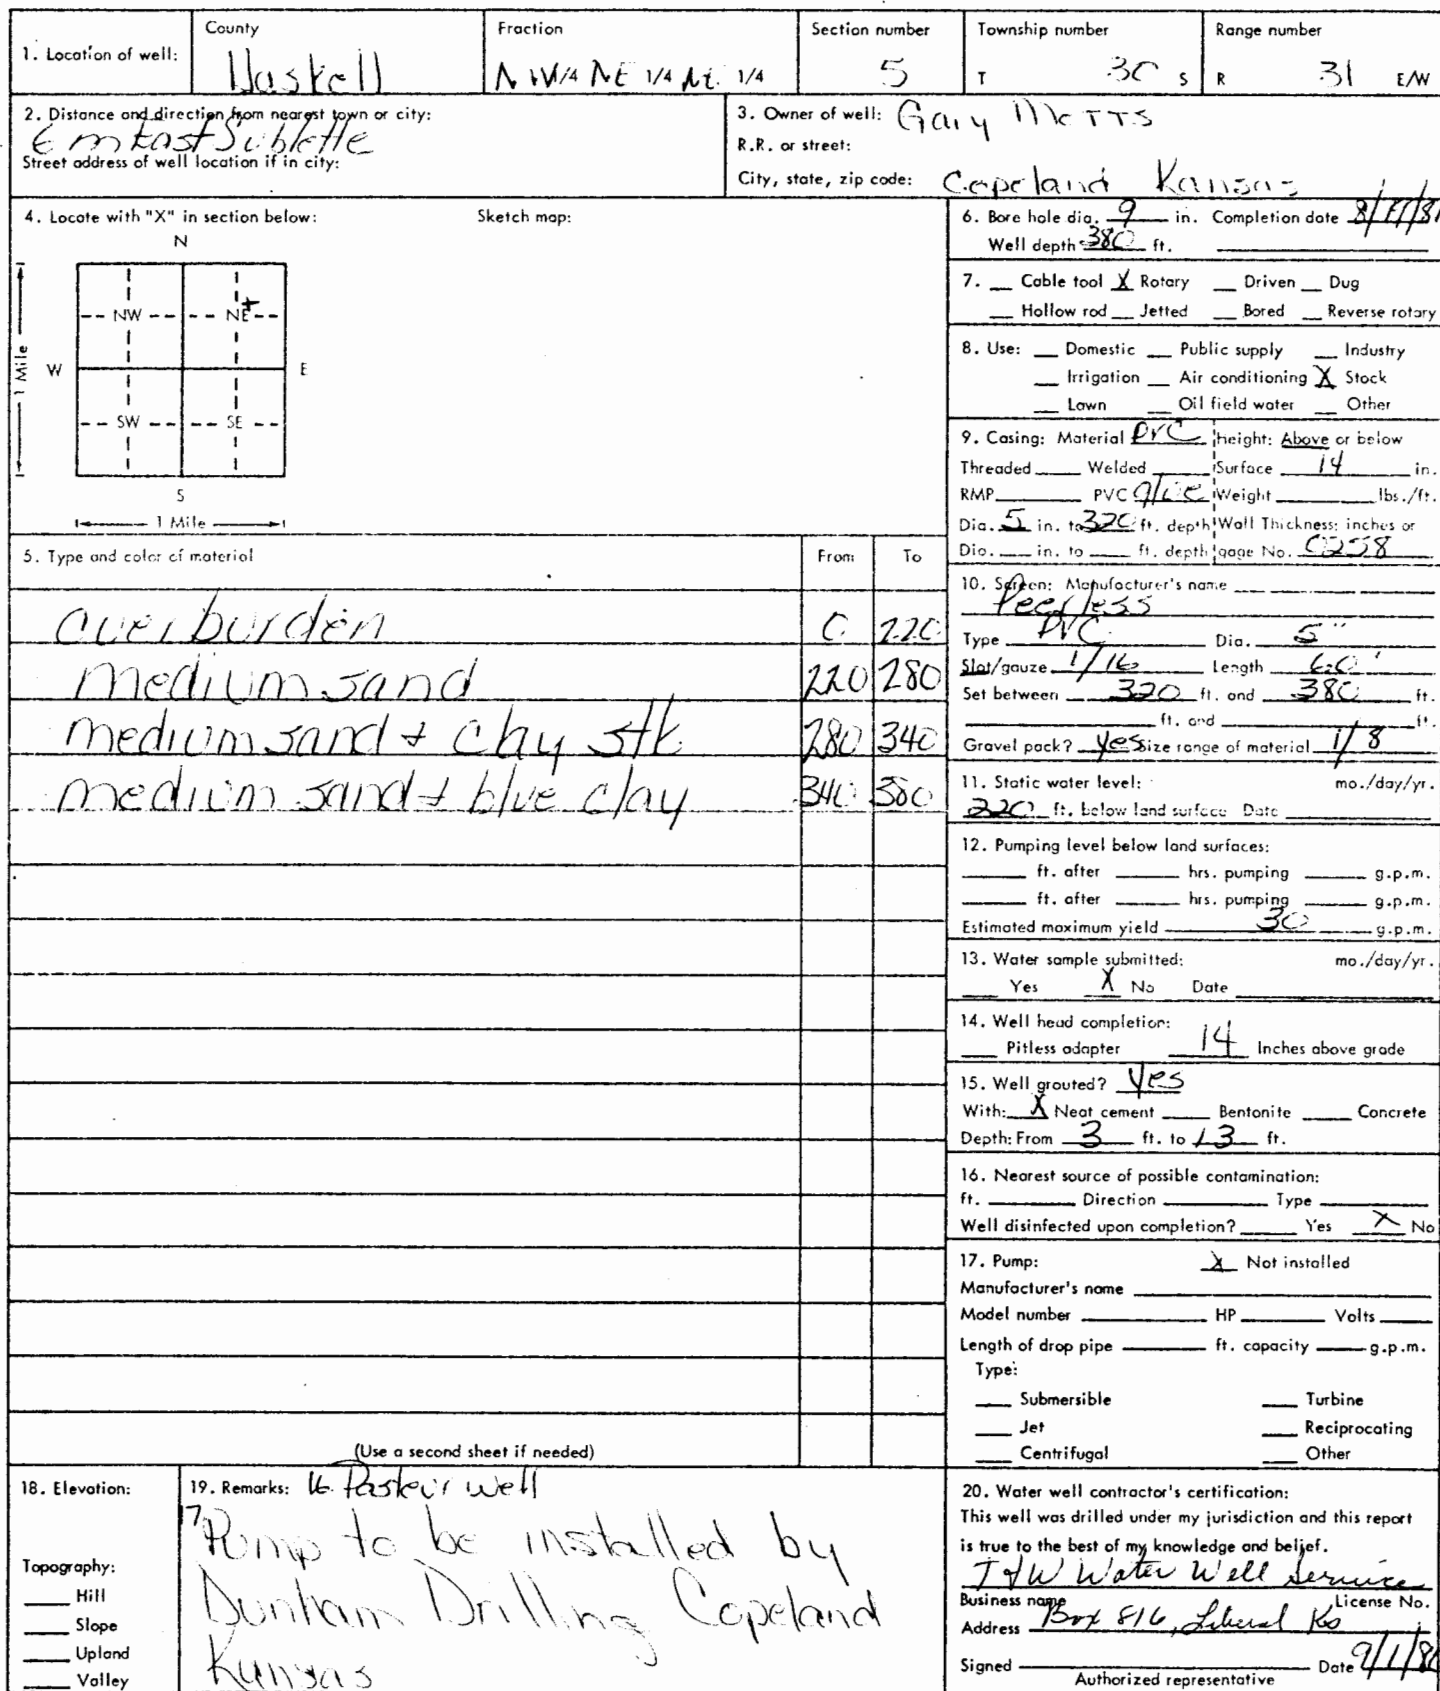 1. Location of well:
County
Haskell
Fraction
NW 1/4 NE 1/4 NE 1/4
Section number
5
Township number
T 30 S
Range number
R 31 E/W
2. Distance and direction from nearest town or city:
6 m East Sublette
Street address of well location if in city:
3. Owner of well: Gary
R.R. or street:
City, state, zip code: Copeland Kansas
4. Locate with "X" in section below:
Sketch map:
N
NW NE
W E
SW SE
S
1 Mile
1 Mile
6. Bore hole dia. 9 in. Completion date
Well depth 380 ft.
7. __ Cable tool X Rotary __ Driven __ Dug
__ Hollow rod __ Jetted __ Bored __ Reverse rotary
8. Use: __ Domestic __ Public supply __ Industry
__ Irrigation __ Air conditioning X Stock
__ Lawn __ Oil field water __ Other
9. Casing: Material PVC Height: Above or below
Threaded ____ Welded ____ Surface 14 in.
RMP ____ PVC glue Weight ____ lbs./ft.
Dia. 5 in. to 320 ft. depth Wall Thickness: inches or
Dia. ___ in. to ___ ft. depth gage No.
5. Type and color of material From To
overburden 0 220
medium sand 220 280
medium sand + clay stk 280 340
medium sand + blue clay 340 380
(Use a second sheet if needed)
10. Screen: Manufacturer's name
Peerless
Type PVC Dia. 5"
Slot/gauze 1/16 Length 60'
Set between 320 ft. and 380 ft.
____ ft. and ____ ft.
Gravel pack? yes Size range of material 1/8
11. Static water level: mo./day/yr.
220 ft. below land surface Date ____
12. Pumping level below land surfaces:
____ ft. after ____ hrs. pumping ____ g.p.m.
____ ft. after ____ hrs. pumping ____ g.p.m.
Estimated maximum yield 30 g.p.m.
13. Water sample submitted: mo./day/yr.
___ Yes X No Date ____
14. Well head completion:
___ Pitless adapter 14 Inches above grade
15. Well grouted? yes
With: X Neat cement ____ Bentonite ____ Concrete
Depth: From 3 ft. to 13 ft.
16. Nearest source of possible contamination:
ft. ____ Direction ____ Type ____
Well disinfected upon completion? ____ Yes X No
17. Pump: X Not installed
Manufacturer's name ____
Model number ____ HP ____ Volts ____
Length of drop pipe ____ ft. capacity ____ g.p.m.
Type:
___ Submersible ___ Turbine
___ Jet ___ Reciprocating
___ Centrifugal ___ Other
18. Elevation:
Topography:
___ Hill
___ Slope
___ Upland
___ Valley
19. Remarks: 16. well
17 Pump to be installed by
Dunham Drilling Copeland
Kansas
20. Water well contractor's certification:
This well was drilled under my jurisdiction and this report
is true to the best of my knowledge and belief.
Water Well Service
Business name License No.
Address Box 816, Liberal Ks
Signed ____ Date
Authorized representative